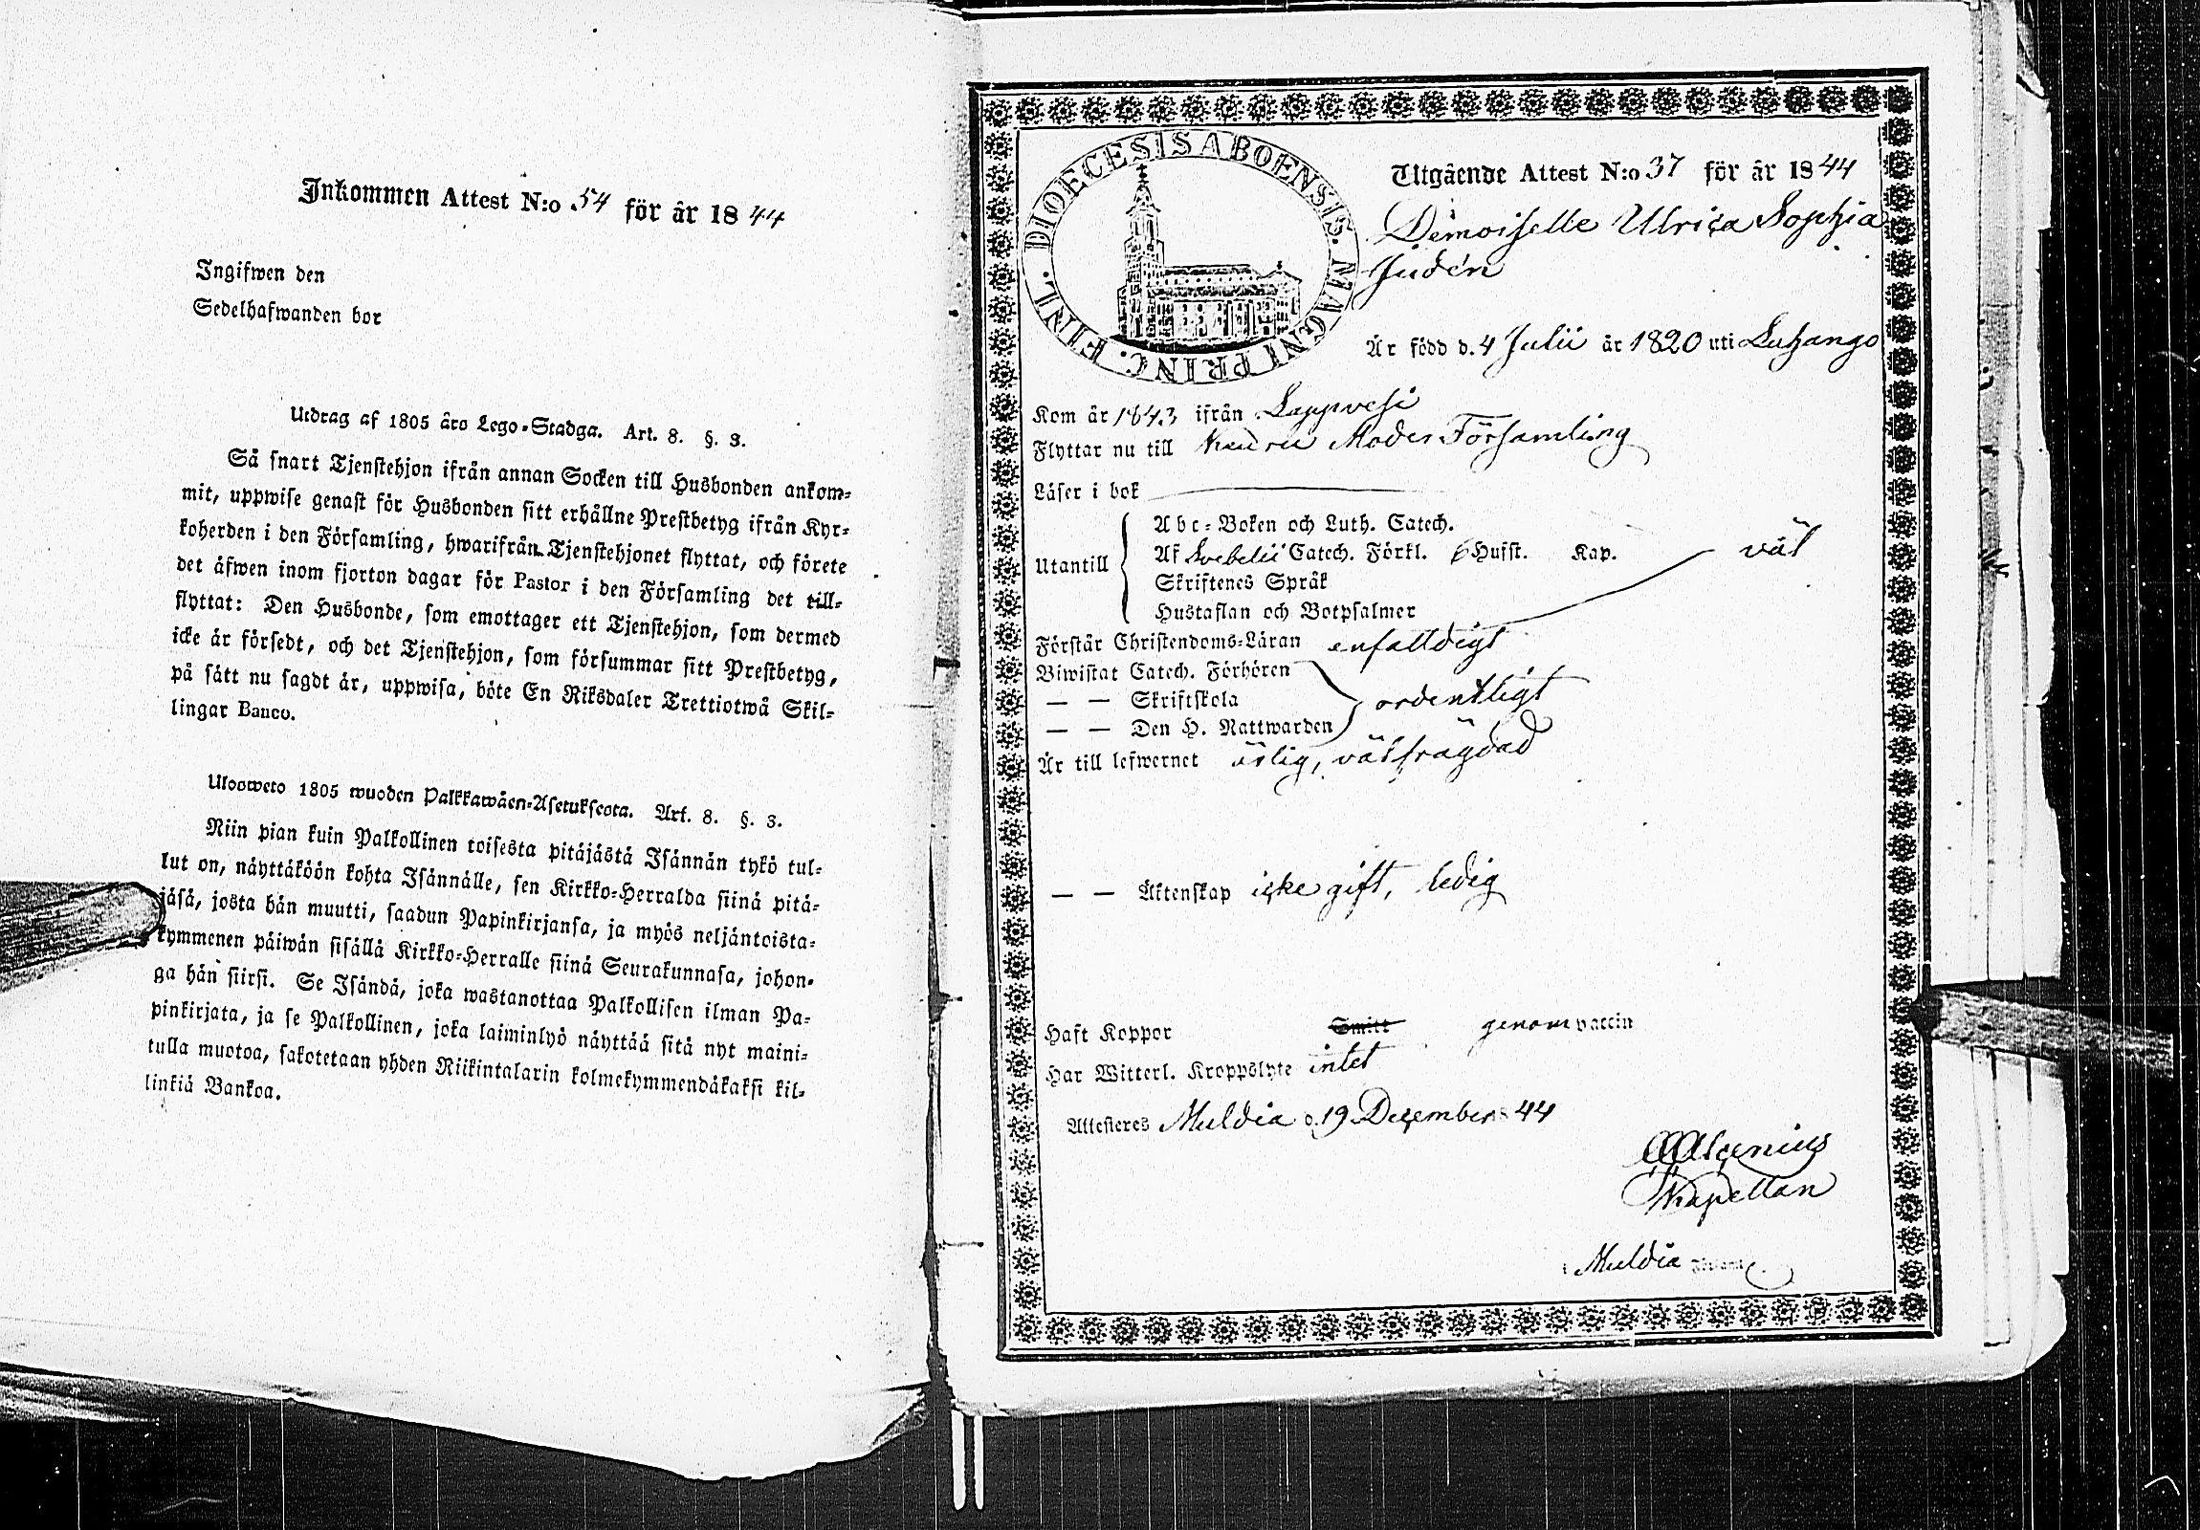 Inkommen Attest N:o 54 för år 1844
Ingifwen den
Sedelhafwanden bor
Utdrag af 1805 års Lego-Stadga. Art. 8. §. 3.
Så snart Tjenstehjon ifrån annan Socken till Husbonden ankom-
mit, uppwise genast för Husbonden sitt erhållne Prestbetyg ifrån Kyr-
koherden i den Församling, hwarifrån Tjenstehjonet flyttat, och förete
det äfwen inom fjorton dagar för Pastor i den Församling det till-
flyttat: Den Husbonde, som emottager ett Tjenstehjon, som dermed
icke är försedt, och det Tjenstehjon, som försummar sitt Prestbetyg,
på sätt nu sagdt är, uppwisa, böte En Riksdaler Trettiotwå Skil-
lingar Banco.
Uloosweto 1805 wuoden Palkkawäen-Asetuksesta. Art. 8. §. 3.
Niin pian kuin Palkollinen toisesta pitäjästä Isännän tykö tul-
lut on, näyttäköön kohta Isännälle, sen Kirkko-Herralda siinä pitä-
jäsä, josta hän muutti, saadun Papinkirjansa, ja myös neljäntoista-
kymmenen päiwän sisällä Kirkko-Herralle siinä Seurakunnasa, johon-
ga hän siirsi. Se Isändä, joka wastanottaa Palkollisen ilman Pa-
pinkirjata, ja se Palkollinen, joka laiminlyö näyttää sitä nyt maini-
tulla muotoa, sakotetaan yhden Riikintalarin kolmekymmendäkaksi kil-
linkiä Bankoa.
DIOECESIS ABOENSIS. MAGNI PRINC. FINL.
Utgående Attest N:o 37 för år 1844
Demoiselle Ulrica Sophia
Judén
Är född d. 4 Julii år 1820 uti Luhango
Kom år 1843 ifrån Lappvesi
Flyttar nu till Keuru Moder Församling
Läser i bok
Utantill
Abc-Boken och Luth. Catech.
Af Svebelii Catech. Förkl. 6 Hufst. Kap. väl
Skriftenes Språk
Hustaflan och Botpsalmer
Förstår Christendoms-Läran enfalldigt
Biwistat Catech. Förhören
— — Skriftskola ordentligt
— — Den H. Nattwarden
Är till lefwernet ärlig, välfrägdad
— — Äktenskap icke gift, ledig
Haft Koppor Smitt genom vaccin
Har Witterl. Kroppslyte intet
Attesteres Muldia d. 19 December 1844
Kapellan
i Muldia